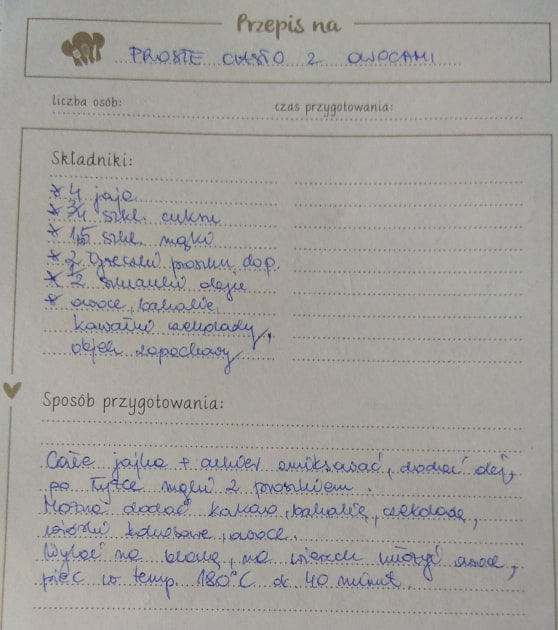 Przepis na
PROSTE CIASTO Z OWOCAMI
liczba osób:
czas przygotowania:
Składniki:
* 4 jaja
* 3/4 szkl. cukru
* 1,5 szkl. mąki
* 2 łyżeczki proszku do p.
* 1/2 szklanki oleju
* owoce, bakalie,
kawałki czekolady,
olejek zapachowy
Sposób przygotowania:
Całe jajka + cukier zmiksować, dodać olej,
po łyżce mąki z proszkiem.
Można dodać kakao, bakalie, czekoladę,
wiórki kokosowe, owoce.
Wylać na blachę, na wierzch włożyć owoce,
piec w temp. 180°C ok 40 minut.